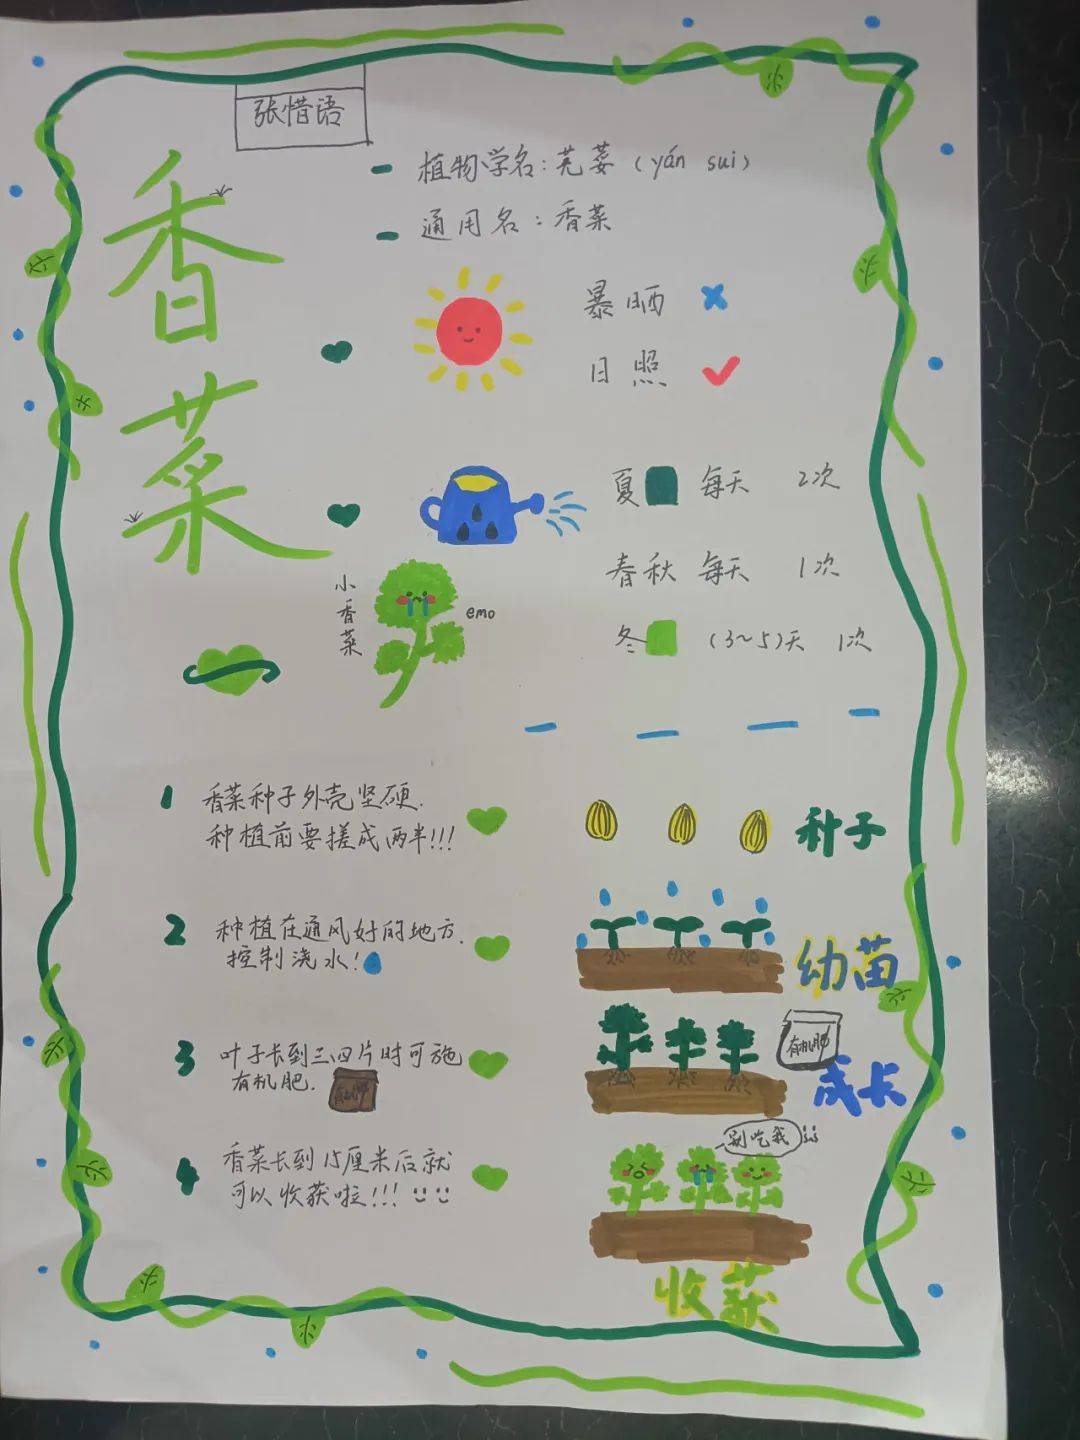 张惜语
香菜
植物学名：芫荽（yán sui）
通用名：香菜
暴晒
日照
夏 每天 2次
春秋 每天 1次
冬 (3~5)天 1次
小香菜
emo
1 香菜种子外壳坚硬.
种植前要搓成两半!!!
种子
2 种植在通风好的地方.
控制浇水!
幼苗
3 叶子长到三四片时可施
有机肥.
有机肥
成长
4 香菜长到15厘米后就
可以收获啦!!!
别吃我
收获